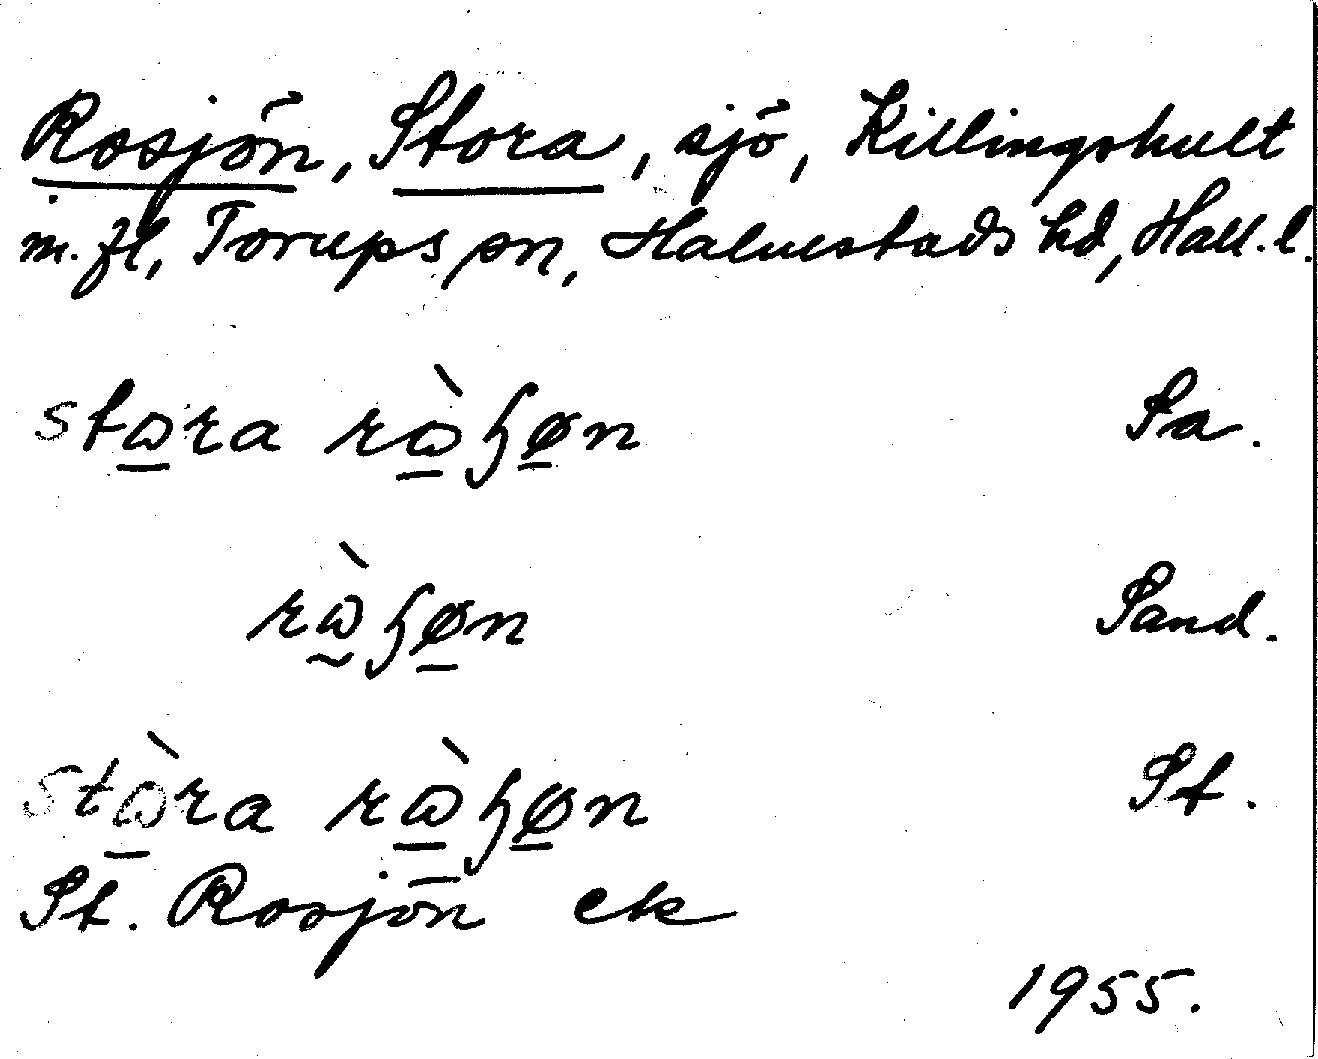 Rosjön, Stora, sjö, Killingshult
m. fl., Torups sn, Halmstads hd, Hall. l.
stɷ̱ra rɷ̱̀ɧø̱n Sa.
rɷ̰̀ɧø̱n Sand.
stɷ̱̀ra rɷ̱̀ɧø̱n St.
St. Rosjön ek
1955.